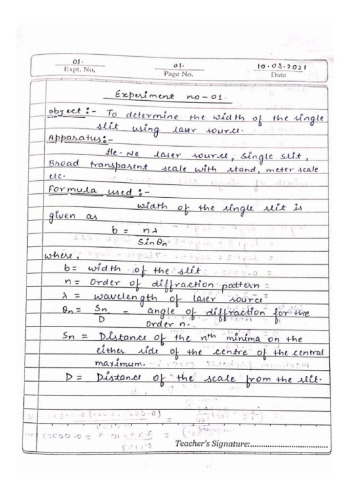 01.
Expt. No.
01.
Page No.
10.03.2021
Date
Experiment no-01.
object :- To determine the width of the single
slit using laser source.
Apparatus:-
He-Ne laser source, Single slit,
Broad transparent scale with stand, meter scale
etc.
Formula used :-
width of the single slit is
given as
b = nλ
Sinθn
where,
b = width of the slit
n = Order of diffraction pattern
λ = wavelength of laser source
θn = Sn = angle of diffraction for the
D order n.
Sn = Distance of the nth minima on the
either side of the centre of the central
maximum.
D = Distance of the scale from the slit.
Teacher's Signature: